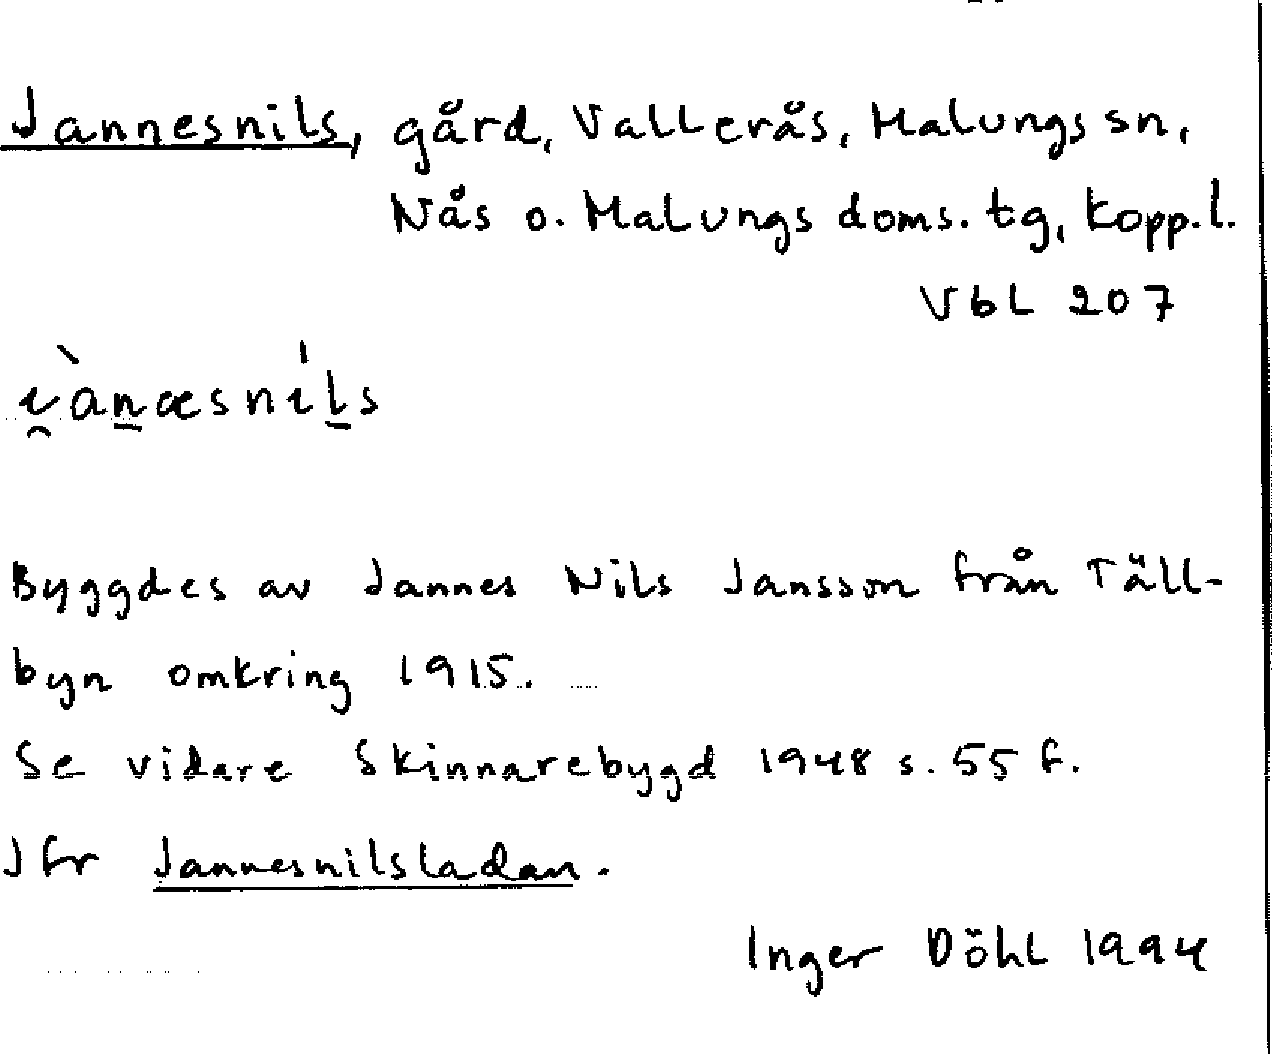 Jannesnils, gård, Vallerås, Malungs sn,
Nås o. Malungs doms. tg, Kopp. l.
VbL 207
i̯ànæsnils
Byggdes av Jannes Nils Jansson från Täll-
byn omkring 1915.
Se vidare Skinnarebygd 1948 s. 55 f.
Jfr Jannesnilsladan.
Inger Döhl 1994